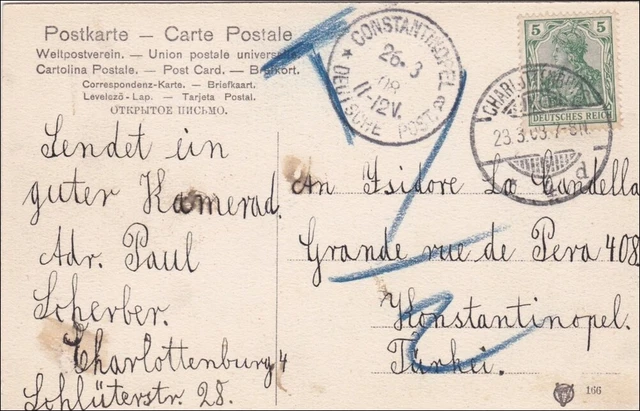 Postkarte — Carte Postale
Weltpostverein. — Union postale universelle
Cartolina Postale. — Post Card. — Brefkort.
Correspondenz-Karte. — Briefkaart.
Levelező-Lap. — Tarjeta Postal.
ОТКРЫТОЕ ПИСЬМО.
CONSTANTINOPEL
26 3
08
11-12V.
DEUTSCHE POST
5 5
DEUTSCHES REICH
CHARLOTTENBURG
23.3.08.7-8N.
d
Sendet ein
guter Kamerad.
Adr. Paul
Scherber.
Charlottenburg 4
Schlüterstr 28.
An Isidore La Candella
Grande rue de Pera 408
Konstantinopel.
Türkei.
T
2
166